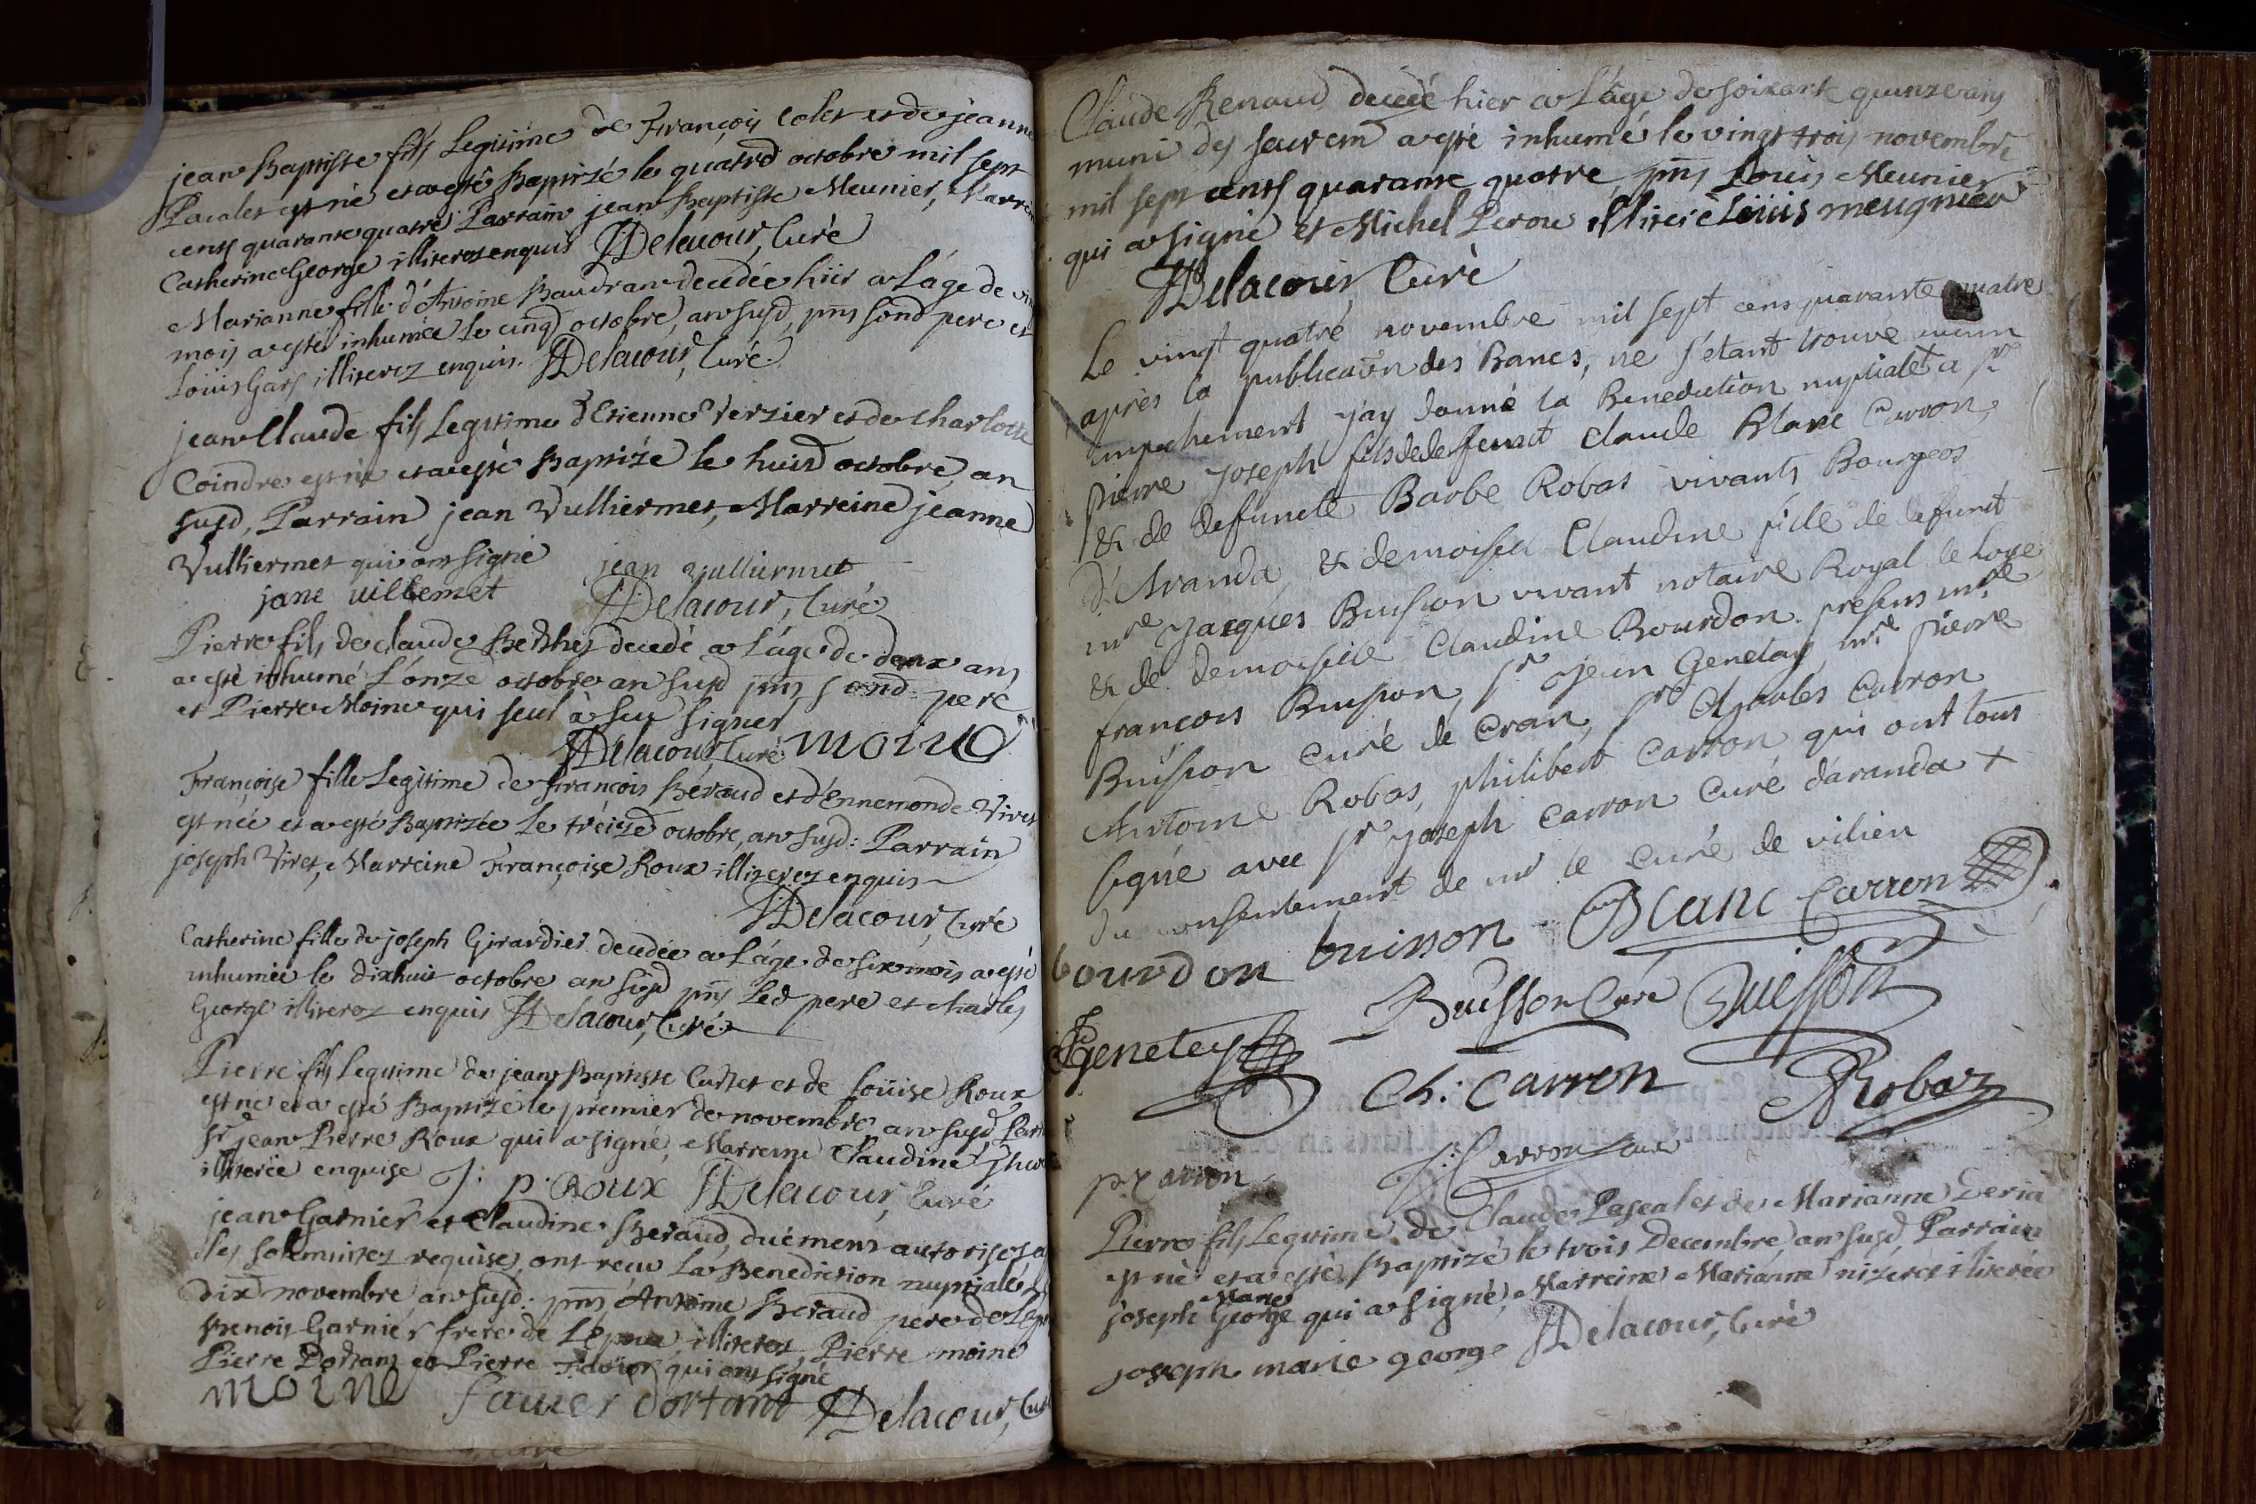 jean Baptiste fils Legitime de François Colet et de jeanne
Pacalet est né et a esté Baptizé le quatre octobre mil sept
cents quarante quatre Parrain jean Baptiste Meunier, Marre
Catherine George illiterez enquis Delacour, Curé
Marianne fille d'Antoine Baudran decedée hier a l'áge de
mois a esté inhumée le cinq octobre, an susd, pnts sond pere et
Loüis Gars illiterez enquis. Delacour, Curé
jean Claude fils Legitime d'Etienne Verzier et de Charlotte
Coindre est né et a esté Baptizé le huit octobre, an
susd, Parrain jean Vulliermet, Marreine jeanne
Vulliermet qui ont signé jean vulliermet
jane villemet Delacour, Curé
Pierre fils de claude Berthet decedé a l'áge de deux ans
a esté inhumé l'onze octobre an susd pnts sond pere
et Pierre Moine qui seul a sçu signer
Delacour, Curé moine
Françoise fille Legitime de françois Béraud et d'Ennemonde Vivet
est née et a esté Baptizée le tréize octobre, an susd: Parrain
joseph Vivet, Marreine Françoise Roux illiterez enquis
Delacour, Curé
Catherine fille de joseph Girardier decedée a l'áge de six mois a esté
inhumée le dixhuit octobre an susd pnts Led pere et charles
George illiterez enquis Delacour, Curé
Pierre fils Legitime de jean Baptiste Curtet et de Loüise Roux
est né et a esté Baptizé le premier de novembre an susd, Parr
Sr jean Pierre Roux qui a signé, Marreine Claudine
illiterée enquise J: p: Roux Delacour, Curé
jean Garnier et Claudine Beraud, duëment autorisés a
les solemnitez requises, ont reçu La Benediction nuptiale
dix novembre an susd: pnts Antoine Beraud pere de
Benoit Garnier frere de illiterez, Pierre moine
Pierre Dortans et Pierre qui ont signé
moine favier dortant Delacour, Curé
Claude Renaud decedé hier a l'áge de soixante quinze ans
muni des sacrem a esté inhumé le vingt trois novembre
mil sept cents quarante quatre, pnts Loüis Meunier
qui a signé et Michel Perou illiteré Loüis meugnier
Delacour, Curé
Le vingt quatre novembre mil sept cens quarante quatre
après la publication des Bancs, ne s'étant trouve aucun
empechement j'ay donné la Benediction nuptiale a Sr
pierre joseph fils de defunct Claude Blanc Carron
& de defuncte Barbe Robat vivants Bourgeos
d'Aranda, & demoiselle Claudine fille de defunct
mre jacques Buisson vivant notaire Royal
& de demoiselle Claudine Bourdon. presens mre
francois Buisson, Sr jean Genetay mre pierre
Buisson Curé de Cran, Sr Charles Carron
Antoine Robas, philibert Carron qui ont tous
signé avec Sr joseph Carron Curé d'aranda +
du consentement de mr le Curé de vilieu
bourdon buisson Blanc Carron
Genetey Buisson Curé Buisson
Ch: Carron Robaz
p. Carron J: Carron Curé
Pierre fils Legitime de Claude Pascal et de Marianne Peria
est né et a esté Baptizé le trois Decembre, an susd, Parrain
joseph Marie George qui a signé, Marreine Marianne illiterée
joseph marie george Delacour, Curé